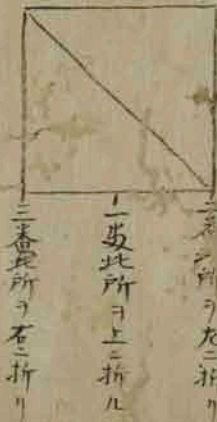 二番此所ヲ左ニ折リ
一番此所ヲ上ニ折ル
三番此所ヲ右ニ折リ